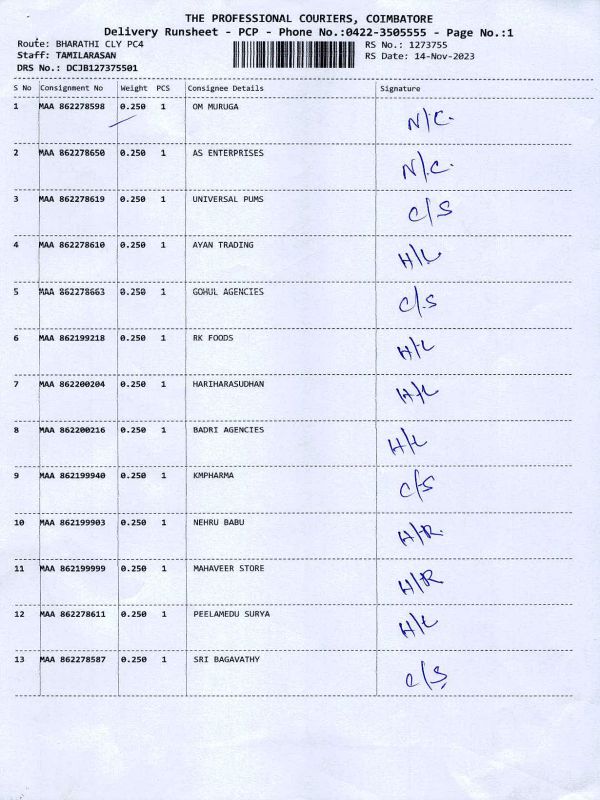 THE PROFESSIONAL COURIERS, COIMBATORE
Delivery Runsheet - PCP - Phone No.:0422-3505555 - Page No.:1
Route: BHARATHI CLY PC4 RS No.: 1273755
Staff: TAMILARASAN RS Date: 14-Nov-2023
DRS No.: DCJB127375501
S No Consignment No Weight PCS Consignee Details Signature
1 MAA 862278598 0.250 1 OM MURUGA N/C.
2 MAA 862278650 0.250 1 AS ENTERPRISES N/C.
3 MAA 862278619 0.250 1 UNIVERSAL PUMS C/S
4 MAA 862278610 0.250 1 AYAN TRADING H/L
5 MAA 862278663 0.250 1 GOHUL AGENCIES C/S
6 MAA 862199218 0.250 1 RK FOODS H/L
7 MAA 862200204 0.250 1 HARIHARASUDHAN H/L
8 MAA 862200216 0.250 1 BADRI AGENCIES H/L
9 MAA 862199940 0.250 1 KMPHARMA C/S
10 MAA 862199903 0.250 1 NEHRU BABU H/R.
11 MAA 862199999 0.250 1 MAHAVEER STORE H/R
12 MAA 862278611 0.250 1 PEELAMEDU SURYA H/L
13 MAA 862278587 0.250 1 SRI BAGAVATHY C/S